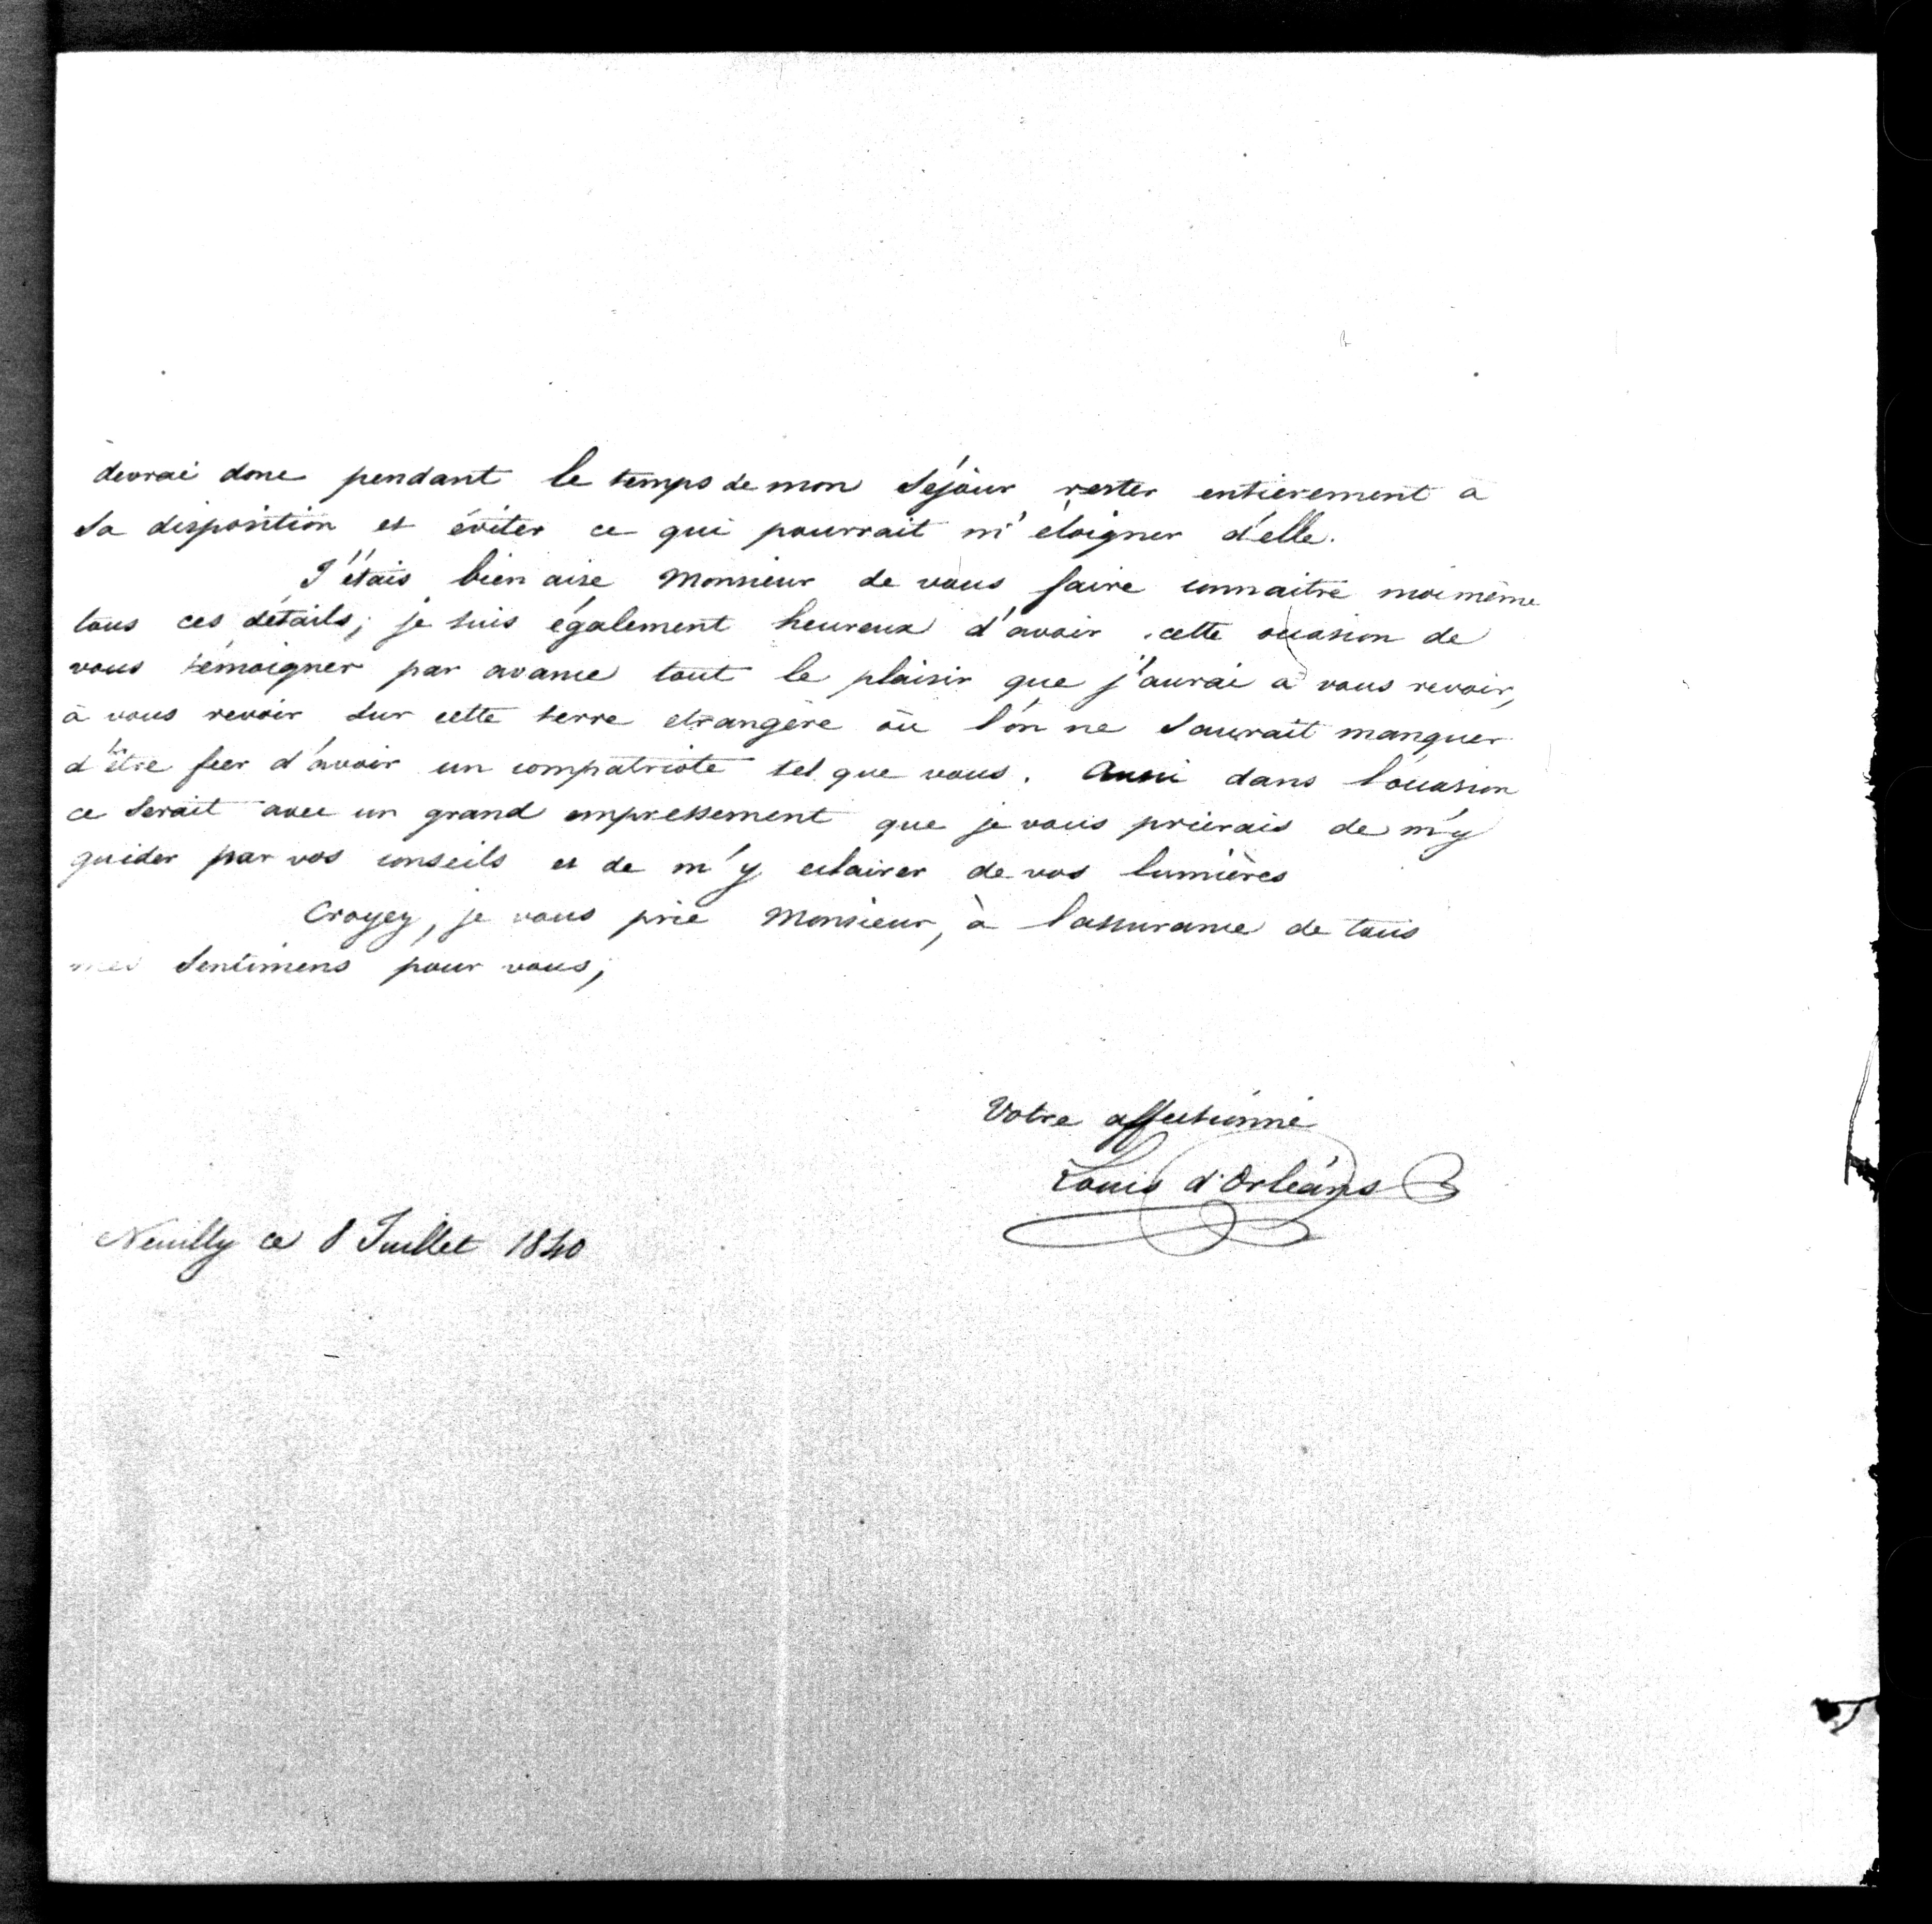 devrai donc pendant le temps de mon séjour rester entierement a
sa disposition et éviter ce qui pourrait m'éloigner d'elle.
J'étais bien aise Monsieur de vous faire connaitre moi même
tous ces détails; je suis également heureux d'avoir cette occasion de
vous témoigner par avance tout le plaisir que j'aurai a vous revoir,
à vous revoir sur cette terre etrangère où l'on ne saurait manquer
d'être fier d'avoir un compatriote tel que vous. Aussi dans l'occasion
ce serait avec un grand empressement que je vous prierais de m'y
guider par vos conseils et de m'y eclairer de vos lumières
Croyez, je vous prie Monsieur, à l'assurance de tous
mes sentimens pour vous;
Votre affectionné
Louis d'Orléans
Neuilly ce 8 Juillet 1840